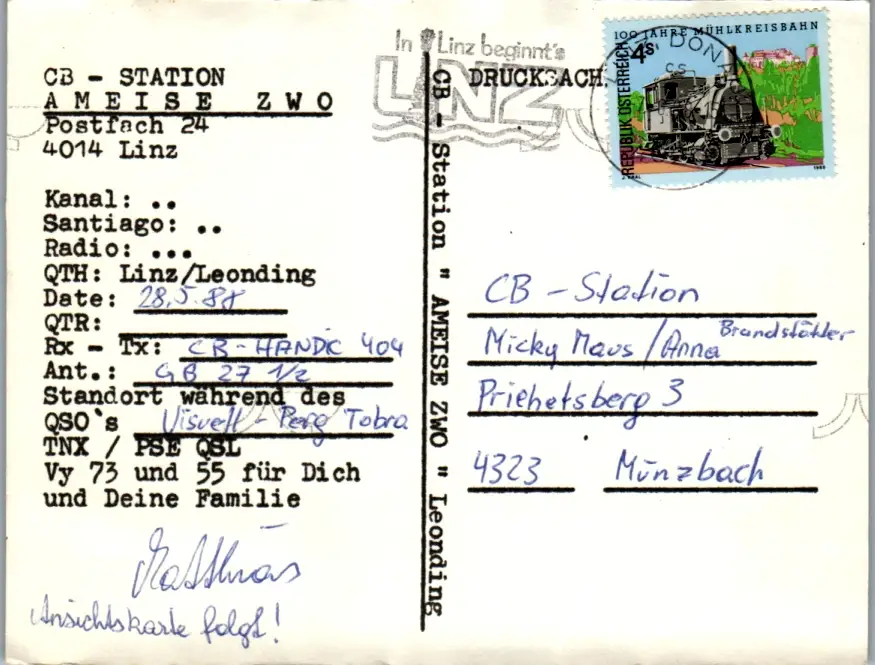 CB - STATION
AMEISE ZWO
Postfach 24
4014 Linz
Kanal: ..
Santiago: ..
Radio: ...
QTH: Linz/Leonding
Date: 28.5.88
QTR:
Rx - Tx: CB-HANDIC 404
Ant.: GB 27 1/2
Standort während des
QSO`s Visuell - Perg Tobra
TNX / PSE QSL
Vy 73 und 55 für Dich
und Deine Familie
Matthias
Ansichtskarte folgt!
CB - Station " AMEISE ZWO " Leonding
In Linz beginnt's
LINZ
DRUCKSACH
100 JAHRE MÜHLKREISBAHN
4S
REPUBLIK ÖSTERREICH
1988
CB - Station
Micky Maus / Anna Brandstätter
Priehetsberg 3
4323 Münzbach